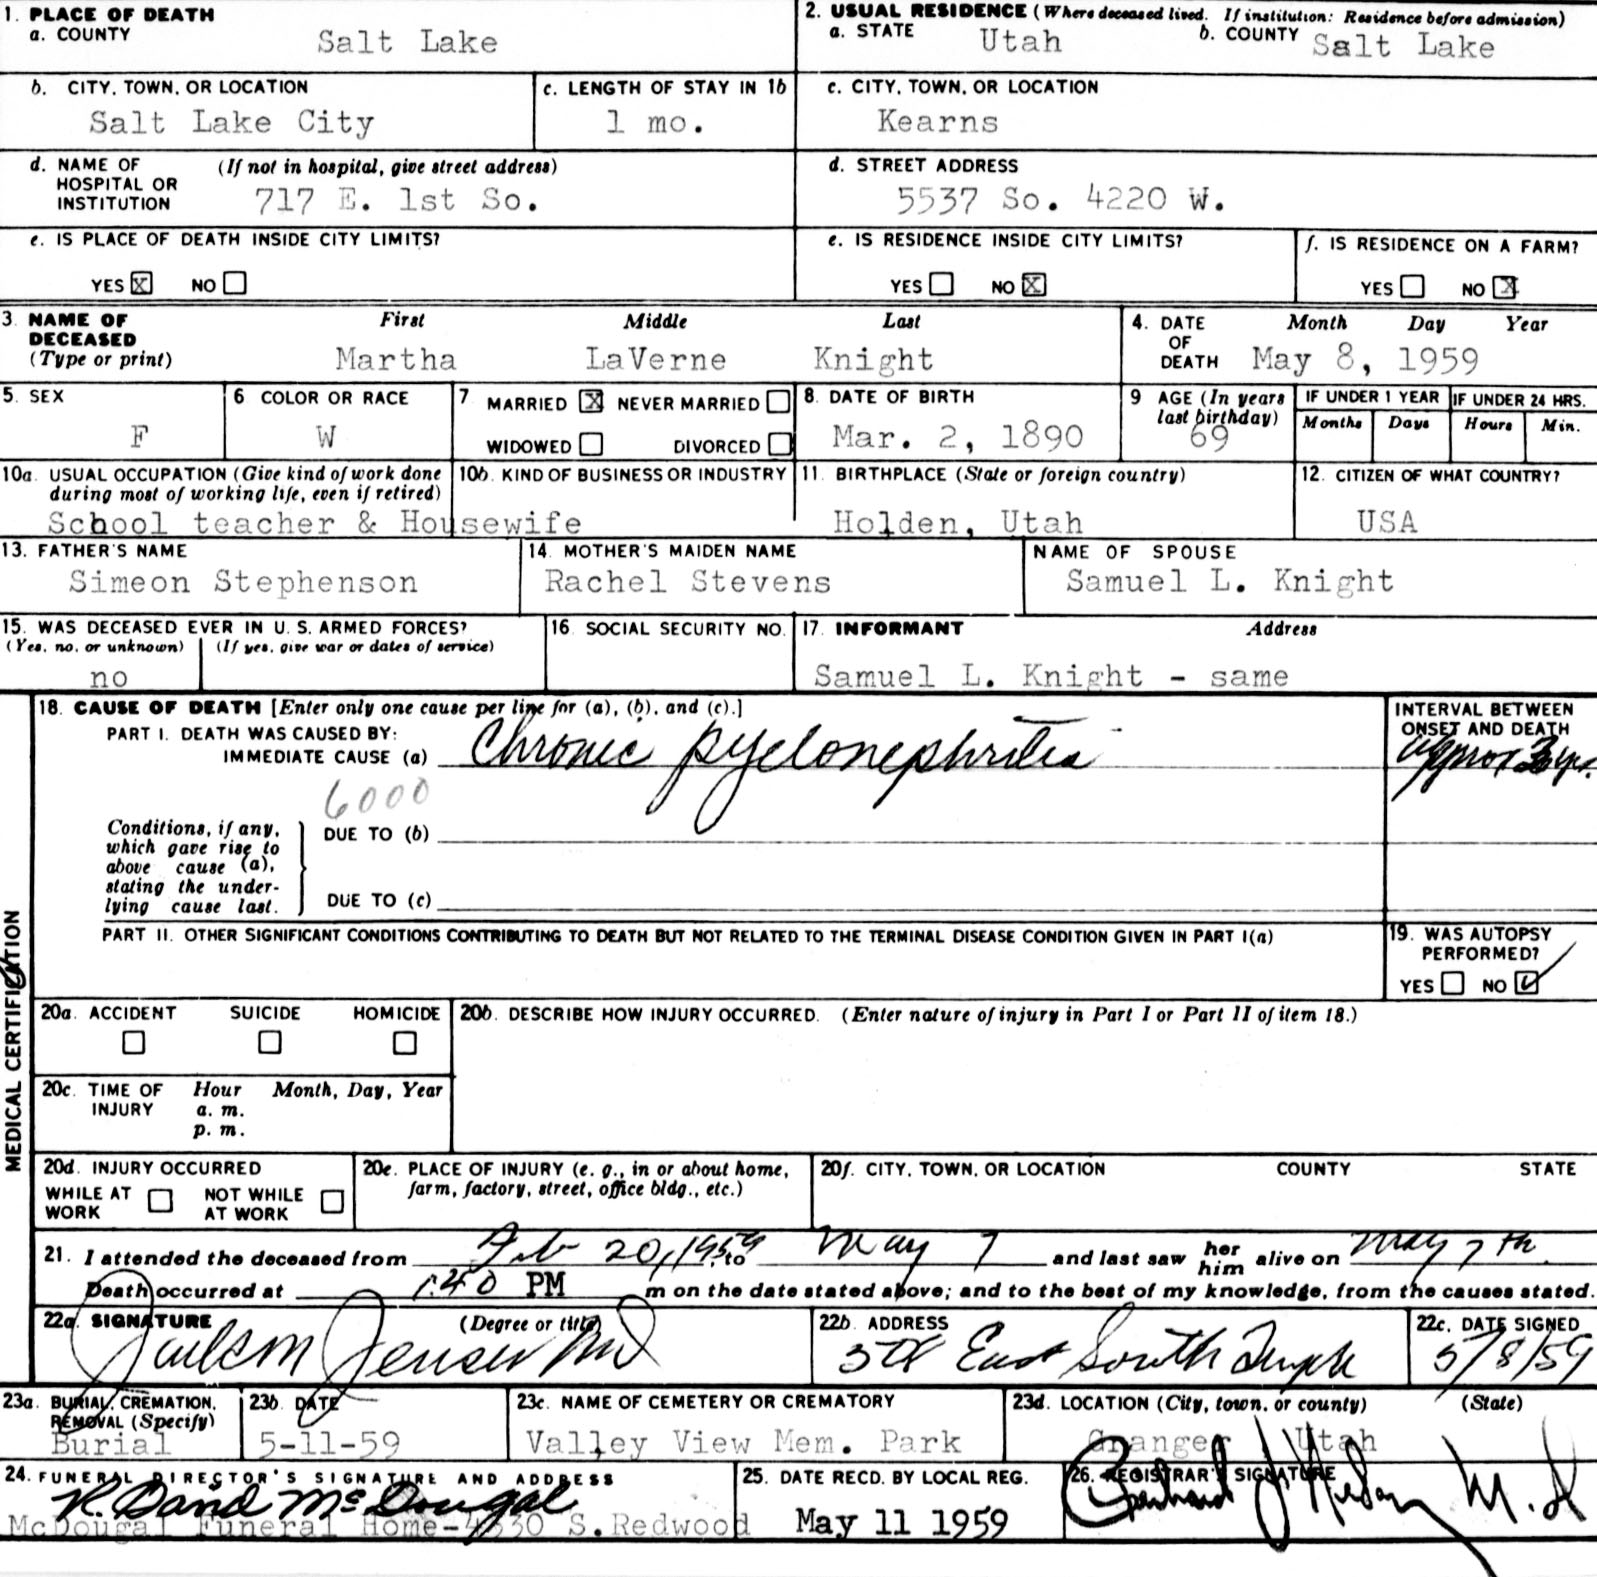 1. PLACE OF DEATH
a. COUNTY
Salt Lake
2. USUAL RESIDENCE (Where deceased lived. If institution: Residence before admission)
a. STATE
Utah
b. COUNTY
Salt Lake
b. CITY, TOWN, OR LOCATION
Salt Lake City
c. LENGTH OF STAY IN 1b
1 mo.
c. CITY, TOWN, OR LOCATION
Kearns
d. NAME OF (If not in hospital, give street address)
HOSPITAL OR
INSTITUTION
717 E. 1st So.
d. STREET ADDRESS
5537 So. 4220 W.
e. IS PLACE OF DEATH INSIDE CITY LIMITS?
YES X NO
e. IS RESIDENCE INSIDE CITY LIMITS?
YES NO X
f. IS RESIDENCE ON A FARM?
YES NO X
3. NAME OF First Middle Last
DECEASED
(Type or print) Martha LaVerne Knight
4. DATE Month Day Year
OF
DEATH May 8, 1959
5. SEX
F
6 COLOR OR RACE
W
7 MARRIED X NEVER MARRIED
WIDOWED DIVORCED
8. DATE OF BIRTH
Mar. 2, 1890
9 AGE (In years
last birthday)
69
IF UNDER 1 YEAR
Months Days
IF UNDER 24 HRS.
Hours Min.
10a. USUAL OCCUPATION (Give kind of work done
during most of working life, even if retired)
School teacher & Housewife
10b. KIND OF BUSINESS OR INDUSTRY
11. BIRTHPLACE (State or foreign country)
Holden, Utah
12. CITIZEN OF WHAT COUNTRY?
USA
13. FATHER'S NAME
Simeon Stephenson
14. MOTHER'S MAIDEN NAME
Rachel Stevens
NAME OF SPOUSE
Samuel L. Knight
15. WAS DECEASED EVER IN U. S. ARMED FORCES?
(Yes, no, or unknown) (If yes, give war or dates of service)
no
16. SOCIAL SECURITY NO.
17. INFORMANT Address
Samuel L. Knight - same
MEDICAL CERTIFICATION
18. CAUSE OF DEATH [Enter only one cause per line for (a), (b), and (c).]
PART I. DEATH WAS CAUSED BY:
IMMEDIATE CAUSE (a) Chronic pyelonephritis
INTERVAL BETWEEN
ONSET AND DEATH
approx 3 yrs.
6000
Conditions, if any,
which gave rise to
above cause (a),
stating the under-
lying cause last.
DUE TO (b)
DUE TO (c)
PART II. OTHER SIGNIFICANT CONDITIONS CONTRIBUTING TO DEATH BUT NOT RELATED TO THE TERMINAL DISEASE CONDITION GIVEN IN PART I(a)
19. WAS AUTOPSY
PERFORMED?
YES NO ✓
20a. ACCIDENT SUICIDE HOMICIDE
20b. DESCRIBE HOW INJURY OCCURRED. (Enter nature of injury in Part I or Part II of item 18.)
20c. TIME OF Hour Month, Day, Year
INJURY a. m.
p. m.
20d. INJURY OCCURRED
WHILE AT NOT WHILE
WORK AT WORK
20e. PLACE OF INJURY (e. g., in or about home,
farm, factory, street, office bldg., etc.)
20f. CITY, TOWN, OR LOCATION COUNTY STATE
21. I attended the deceased from Feb 20, 1959 to May 7 and last saw her him alive on May 7th.
Death occurred at 1:40 PM m on the date stated above; and to the best of my knowledge, from the causes stated.
22a. SIGNATURE (Degree or title)
Jensen MD
22b. ADDRESS
508 East South Temple
22c. DATE SIGNED
5/8/59
23a. BURIAL, CREMATION,
REMOVAL (Specify)
Burial
23b. DATE
5-11-59
23c. NAME OF CEMETERY OR CREMATORY
Valley View Mem. Park
23d. LOCATION (City, town, or county) (State)
Granger Utah
24. FUNERAL DIRECTOR'S SIGNATURE AND ADDRESS
R. David McDougal
McDougal Funeral Home-4330 S. Redwood
25. DATE RECD. BY LOCAL REG.
May 11 1959
26. REGISTRAR'S SIGNATURE
M. D